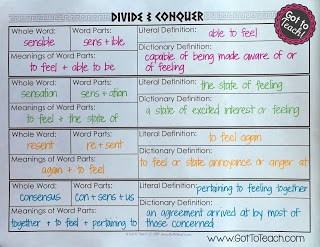 DIVIDE & CONQUER
Got to Teach!
Whole Word: Word Parts: Literal Definition: able to feel
sensible sens + ible
Dictionary Definition:
Meanings of Word Parts: capable of being made aware of or
to feel + able to be of feeling
Whole Word: Word Parts: Literal Definition:
sensation sens + ation the state of feeling
Meanings of Word Parts: Dictionary Definition:
to feel + the state of a state of excited interest or feeling
Whole Word: Word Parts: Literal Definition:
resent re + sent to feel again
Meanings of Word Parts: Dictionary Definition:
again + to feel to feel or state annoyance or anger at
Whole Word: Word Parts: Literal Definition: pertaining to feeling together
consensus con + sens + us
Dictionary Definition:
Meanings of Word Parts: an agreement arrived at by most of
together + to feel + pertaining to those concerned
www.GotToTeach.com